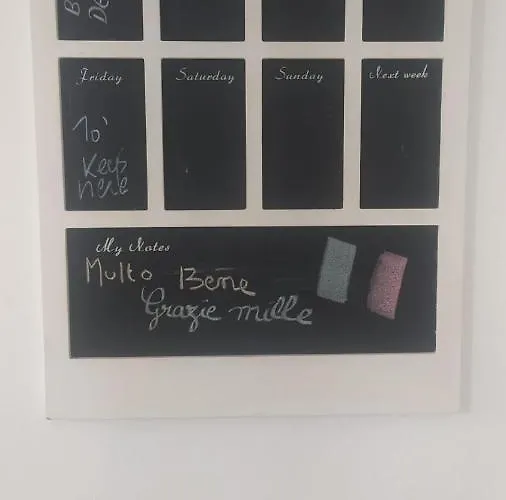 Friday
Saturday
Sunday
Next week
10'
Keep
here
My Notes
Multo Bene
Grazie mille